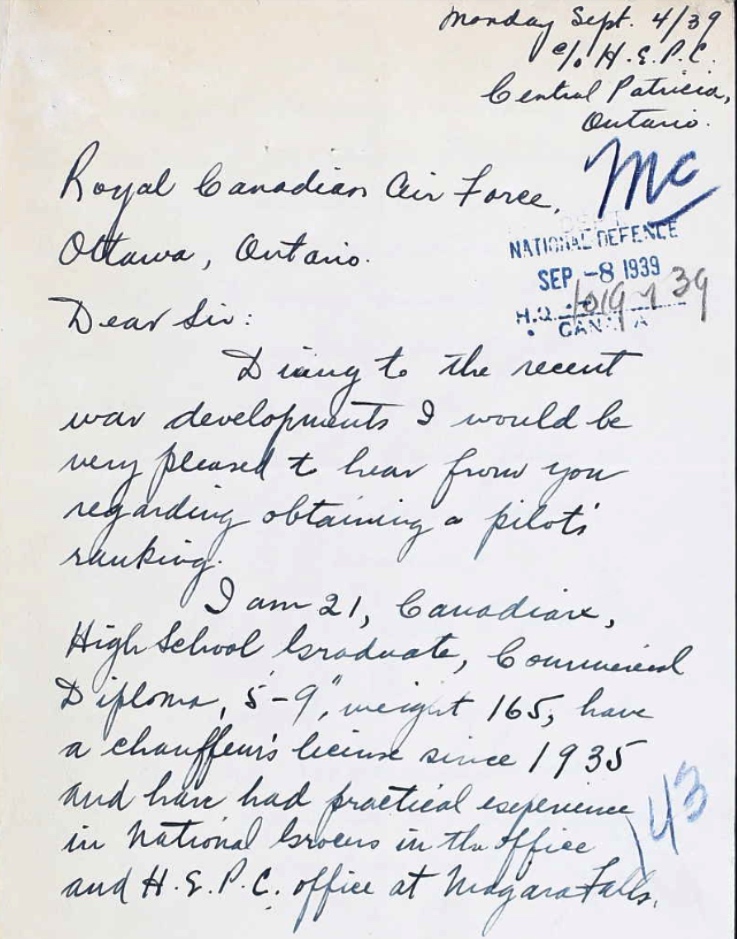 Monday Sept. 4/39
c/o H.E.P.C.
Central Patricia,
Ontario.
Royal Canadian Air Force,
Ottawa, Ontario.
Mc
NATIONAL DEFENCE
SEP -8 1939
H.Q. 1019-7 39
CANADA
Dear Sir:
Diuing to the recent
war developments I would be
very pleased to hear from you
regarding obtaining a pilot's
ranking.
I am 21, Canadian,
High School Graduate, Commercial
Diploma, 5-9", weight 165, have
a chauffeur's license since 1935
and have had practical experience
in National Grocers in the office
and H.E.P.C. office at Niagara Falls.
143